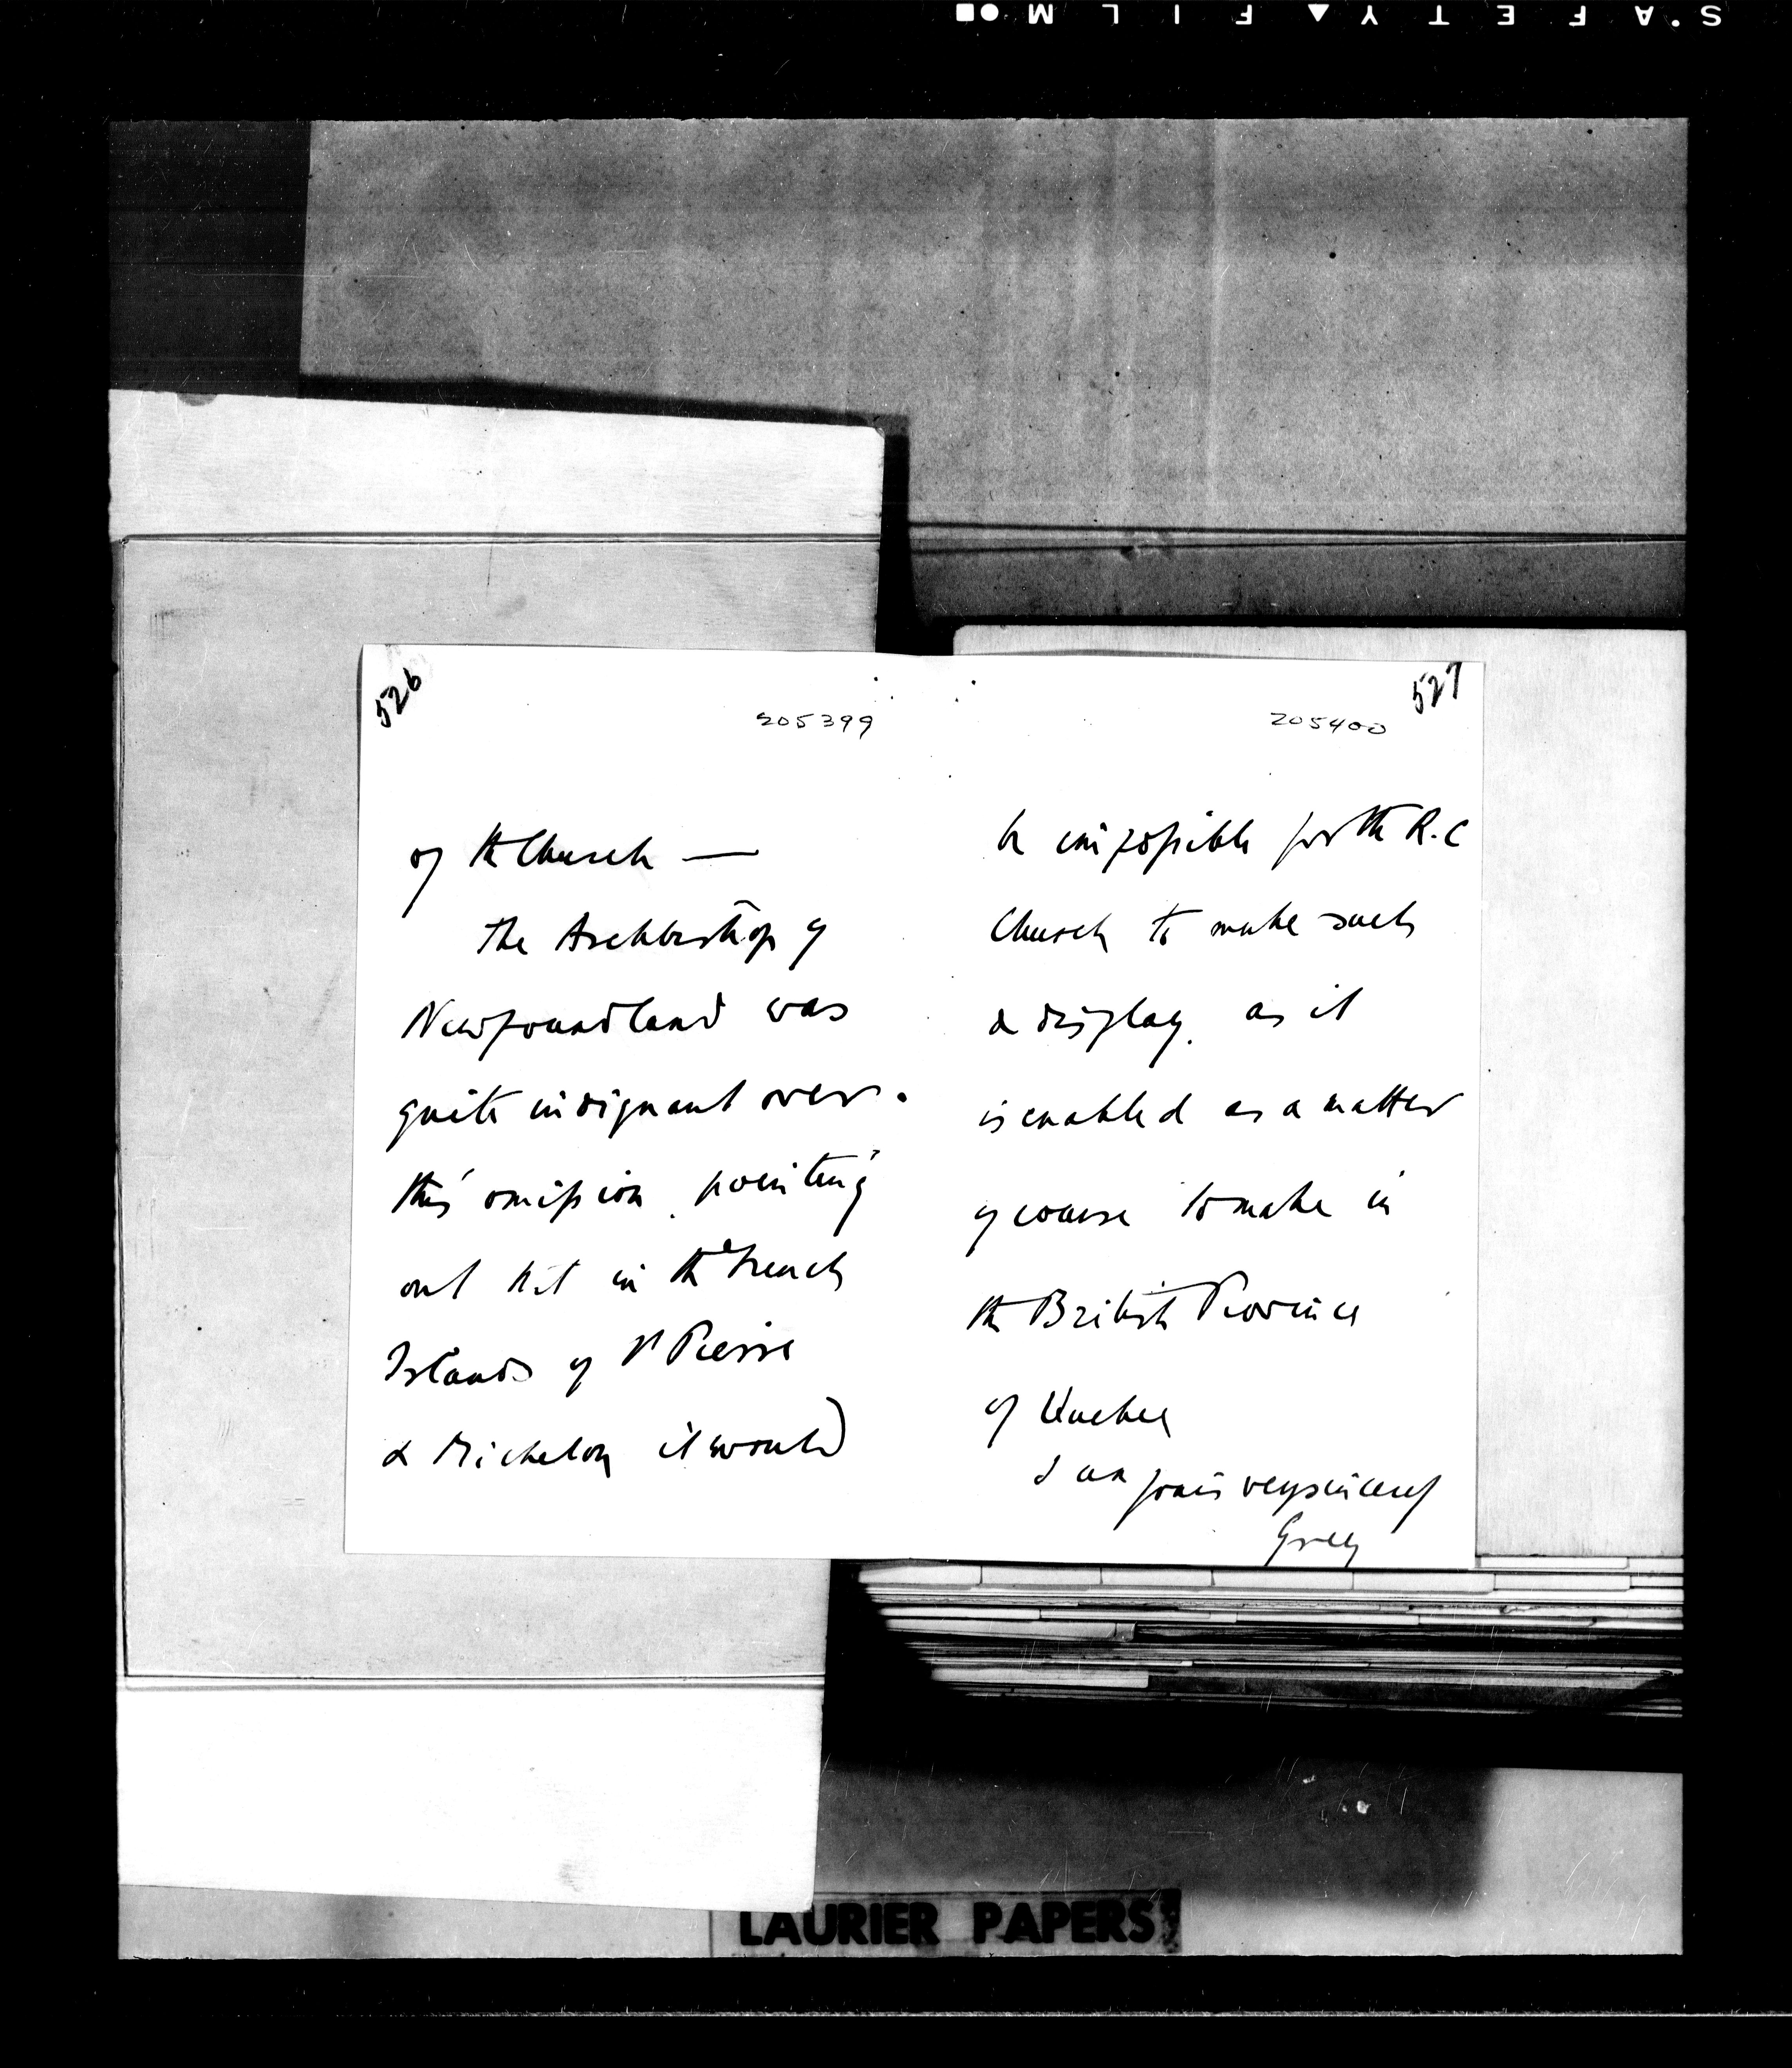 SAFETY FILM
526
205399
of the Church —
The Archbishop of
Newfoundland was
quite indignant over
this omission, pointing
out that in the French
Islands of St Pierre
& Michelon it would
527
205400
be impossible for the R.C
Church to make such
a display, as it
is enabled as a matter
of course to make in
the British Province
of Quebec
I am yours very sincerely
Grey
LAURIER PAPERS